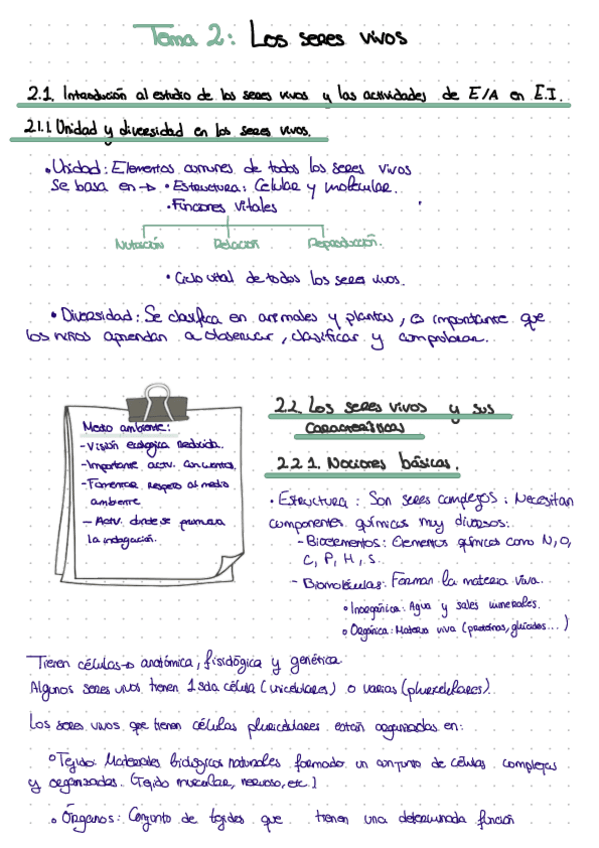 Tema 2: Los seres vivos
2.1. Introducción al estudio de los seres vivos y las actividades de E/A en E.I.
2.1.1. Unidad y diversidad en los seres vivos.
• Unidad: Elementos comunes de todos los seres vivos
Se basa en → • Estructura: Celular y molecular.
• Funciones vitales
Nutrición Relación Reproducción.
• Ciclo vital de todos los seres vivos.
• Diversidad: Se clasifica en animales y plantas, es importante que
los niños aprendan a observar, clasificar y comprobar.
Medio ambiente:
- Visión ecológica reducida.
- Importante activ. en cuenta.
- Fomentar respeto al medio
ambiente
- Activ. donde se promueva
la indagación.
2.2. Los seres vivos y sus
características
2.2.1. Nociones básicas.
• Estructura: Son seres complejos: Necesitan
componentes químicos muy diversos:
- Bioelementos: Elementos químicos como N, O,
C, P, H, S.
- Biomoléculas: Forman la materia viva.
• Inorgánica: Agua y sales minerales.
• Orgánica: Materia viva (proteínas, glúcidos...)
Tienen células → anatómica, fisiológica y genética
Algunos seres vivos tienen 1 sola célula (unicelulares) o varias (pluricelulares).
Los seres vivos que tienen células pluricelulares están organizadas en:
• Tejido: Materiales biológicos naturales formados un conjunto de células complejas
y organizadas. (Tejido muscular, nervioso, etc.)
• Órganos: Conjunto de tejidos que tienen una determinada función